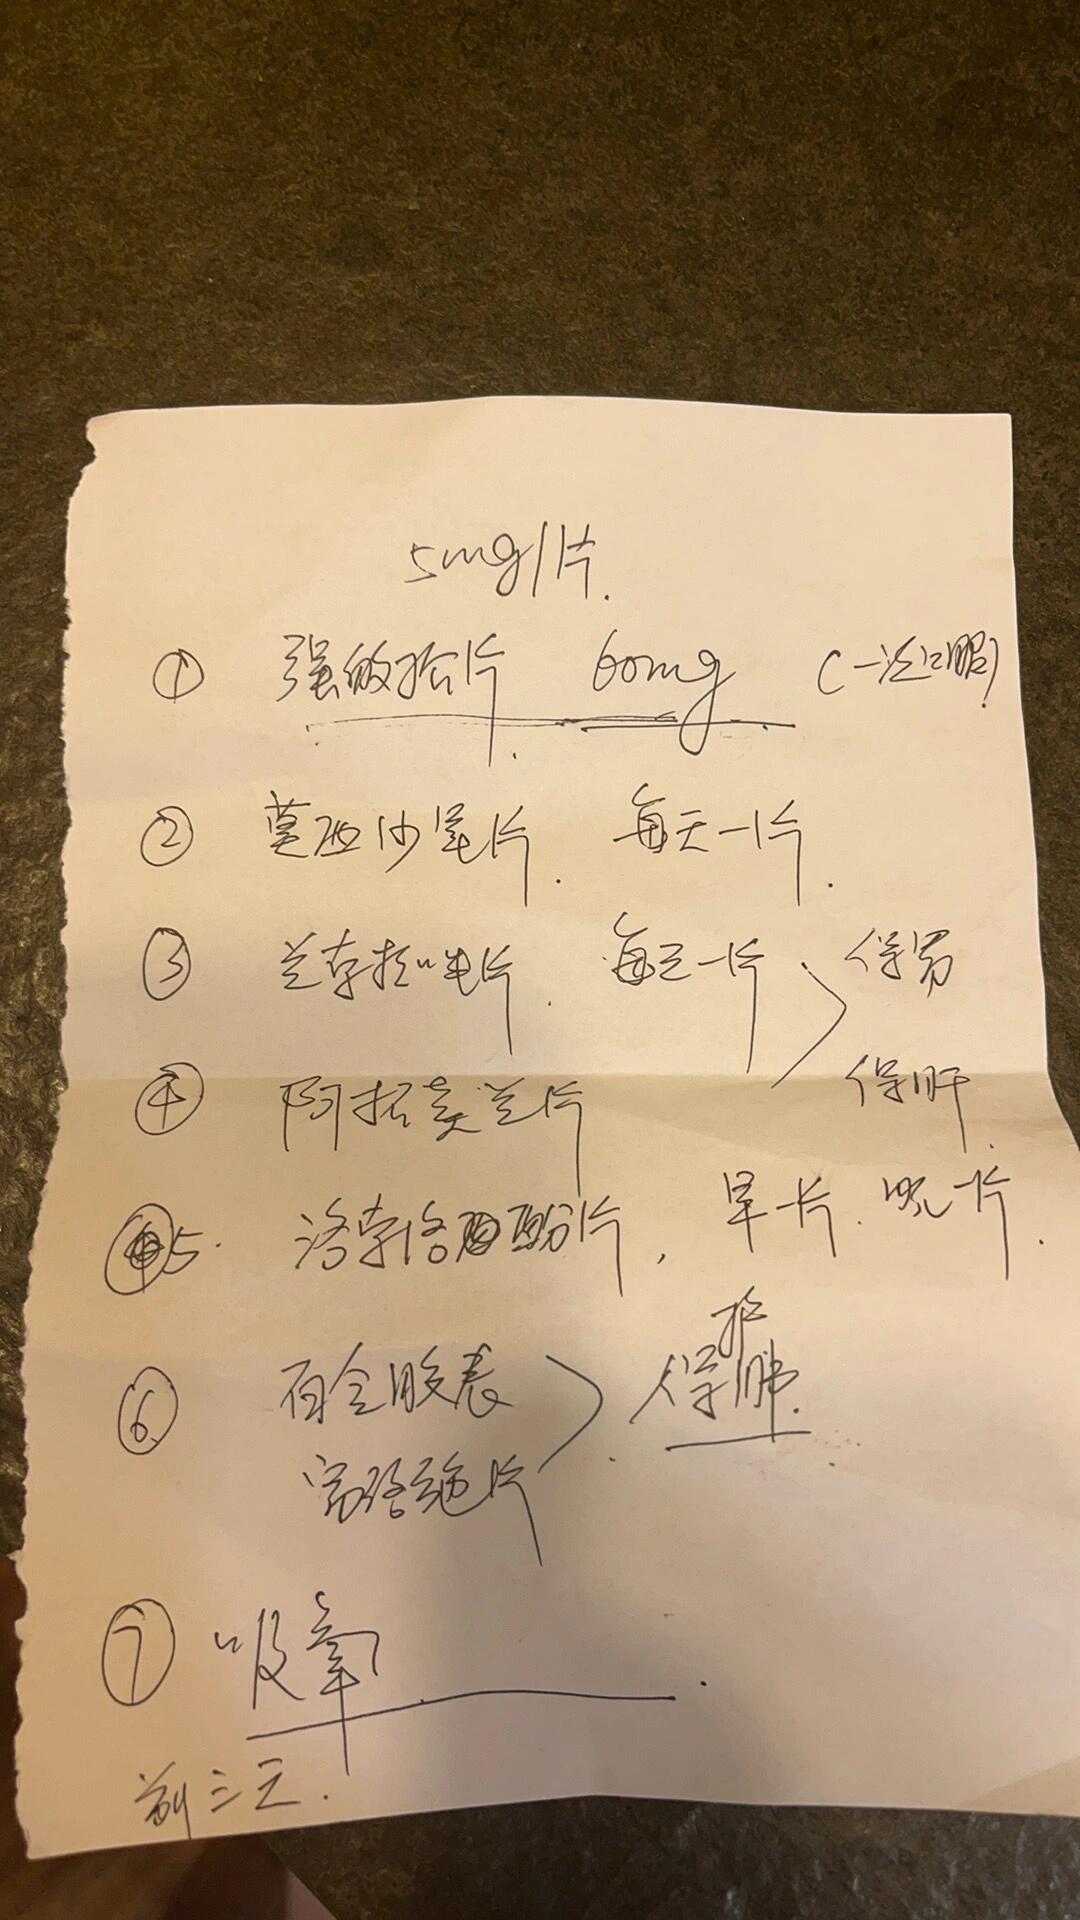 5mg/片.
① 强的松片 60mg (一次口服)
② 莫西沙星片. 每天一片.
③ 兰索拉唑片. 每天一片. 保胃
④ 阿拓莫兰片 保肝.
5. 洛索洛芬片, 早一片. 晚一片.
⑥ 百令胶囊 保护肺.
富露施片
⑦ 吸氧.
前三天.